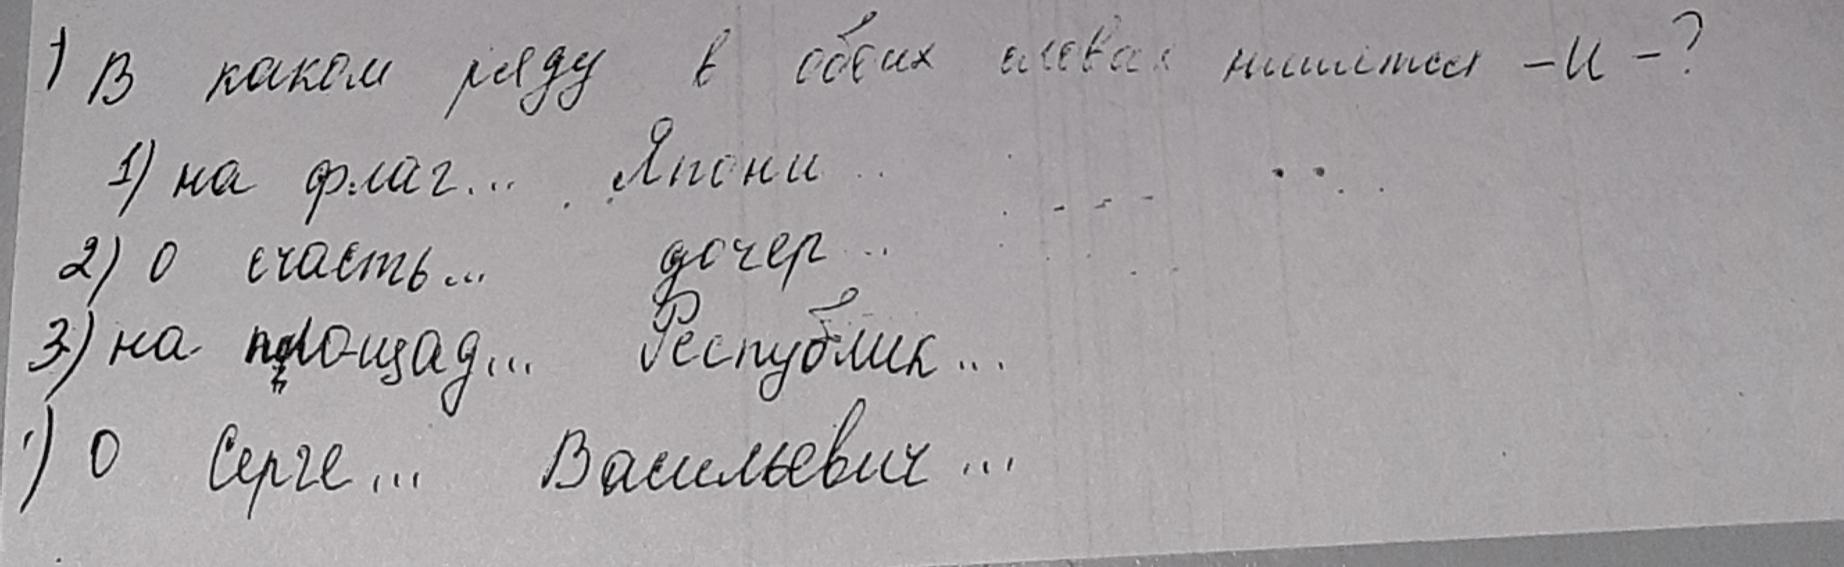 1) В каком ряду в обоих словах пишется -и-?
1) на флаг... Япони...
2) о счасть... дочер...
3) на площад... Республик...
) о Серге... Васильевич...